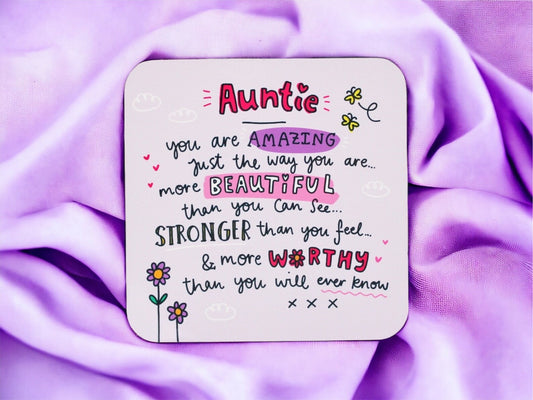 Auntie
you are AMAZING
just the way you are...
more BEAUTiFUL
than you Can See...
STRONGER than you feel...
& more WORTHY
than you will ever know
x x x